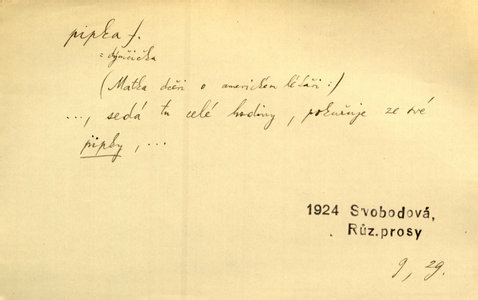 pipka f.
= dýmčička
(Matka dceři o americkém lékaři:)
..., sedá tu celé hodiny, pokuřuje ze své
pipky, ...
1924 Svobodová,
Růz.prosy
9, 29.